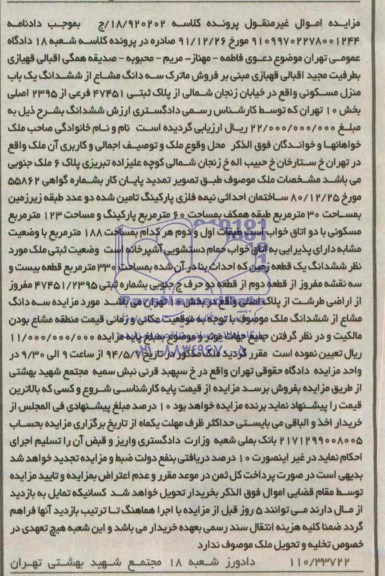 مزایده اموال غیرمنقول پرونده کلاسه ۹۲۰۲۰۲/ج۱۸ بموجب دادنامه
۹۱۰۹۹۷۰۲۲۷۸۰۰۱۲۴۴ مورخ ۹۱/۱۲/۲۶ صادره در پرونده کلاسه شعبه ۱۸ دادگاه
عمومی تهران موضوع دعوی فاطمه - مهناز- مریم - محبوبه - صدیقه همگی اقبالی قهیازی
بطرفیت مجید اقبالی قهیازی مبنی بر فروش ماترک سه دانگ مشاع از ششدانگ یک باب
منزل مسکونی واقع در خیابان زنجان شمالی از پلاک ثبتی ۴۷۴۵۱ فرعی از ۲۳۹۵ اصلی
بخش ۱۰ تهران که توسط کارشناس رسمی دادگستری ارزش ششدانگ بشرح ذیل به
مبلغ ۲۲/۰۰۰/۰۰۰/۰۰۰ ریال ارزیابی گردیده است نام و نام خانوادگی صاحب ملک
خواهانها و خواندگان فوق الذکر محل وقوع ملک و توصیف اجمالی و کاربری آن ملک واقع
در تهران خ ستارخان خ حبیب اله خ زنجان شمالی کوچه علیزاده تبریزی پلاک ۶ ملک جنوبی
می باشد مشخصات ملک موصوف طبق تصویر تمدید پایان کار بشماره گواهی ۵۵۸۶۲
مورخ ۸۰/۱۲/۲۵ ساختمان احداثی نیمه فلزی پارکینگ تامین شده دو عدد طبقه زیرزمین
بمساحت ۳۰ مترمربع طبقه همکف بمساحت ۶۰ مترمربع پارکینگ و مساحت ۱۲۳ مترمربع
مسکونی با دو اتاق خواب است طبقات اول و دوم هر کدام بمساحت ۱۸۸ مترمربع با وضعیت
مشابه دارای پذیرایی به اتاق خواب حمام دستشویی آشپزخانه است وضعیت ثبتی ملک مورد
نظر ششدانگ یک قطعه زمین که احداث بنا در آن شده بمساحت ۳۳۰ مترمربع قطعه بیست و
سه نقشه مفروز از قطعه دوم از قطعه دو حرف ج جنوبی بشماره ثبتی ۴۷۴۵۱/۲۳۹۵ مفروز
از اراضی طرشت از پلاک اصلی واقع در بخش ۱۰ تهران می باشد مورد مزایده سه دانگ
مشاع از ششدانگ ملک موصوف با توجه به موقعیت مکانی و زمانی قیمت منطقه مشاع بودن
مالکیت و در نظر گرفتن جمیع جهات موثر و موضوع مبلغ پایه مزایده ۱۱/۰۰۰/۰۰۰/۰۰۰
ریال تعیین نموده است مقرر گردید ملک مذکور در تاریخ ۹۴/۵/۷ از ساعت ۹ الی ۹/۳۰ در
واحد مزایده دادگاه حقوقی تهران واقع در خ سپهبد قرنی نبش سمیه مجتمع شهید بهشتی
از طریق مزایده بفروش برسد مزایده از قیمت پایه کارشناسی شروع و کسی که بالاترین
قیمت را پیشنهاد نماید برنده مزایده خواهد بود ۱۰ درصد مبلغ پیشنهادی فی المجلس از
خریدار اخذ و الباقی می بایستی حداکثر ظرف مهلت یکماه از تاریخ برگزاری مزایده بحساب
۲۱۷۱۲۹۹۰۰۸۰۰۵ بانک ملی شعبه وزارت دادگستری واریز و قبض آن را تسلیم اجرای
احکام نماید در غیر اینصورت ۱۰ درصد دریافتی بنفع دولت ضبط و مزایده تجدید خواهد شد
بدیهی است در صورت پرداخت کل ثمن در موعد مقرر و عدم اعتراض بمزایده و تایید مزایده
توسط مقام قضایی اموال فوق الذکر بخریدار تحویل خواهد شد کسانیکه تمایل به بازدید
از مال دارند می توانند ۵ روز قبل از مزایده با اجرا هماهنگ تا ترتیب بازدید آنها فراهم
گردد ضمنا کلیه هزینه انتقال سند رسمی بعهده خریدار می باشد و این شعبه هیچ تعهدی در
خصوص تخلیه و تحویل ملک موصوف ندارد
۱۱۰/۳۳۷۲۲ دادورز شعبه ۱۸ مجتمع شهید بهشتی تهران